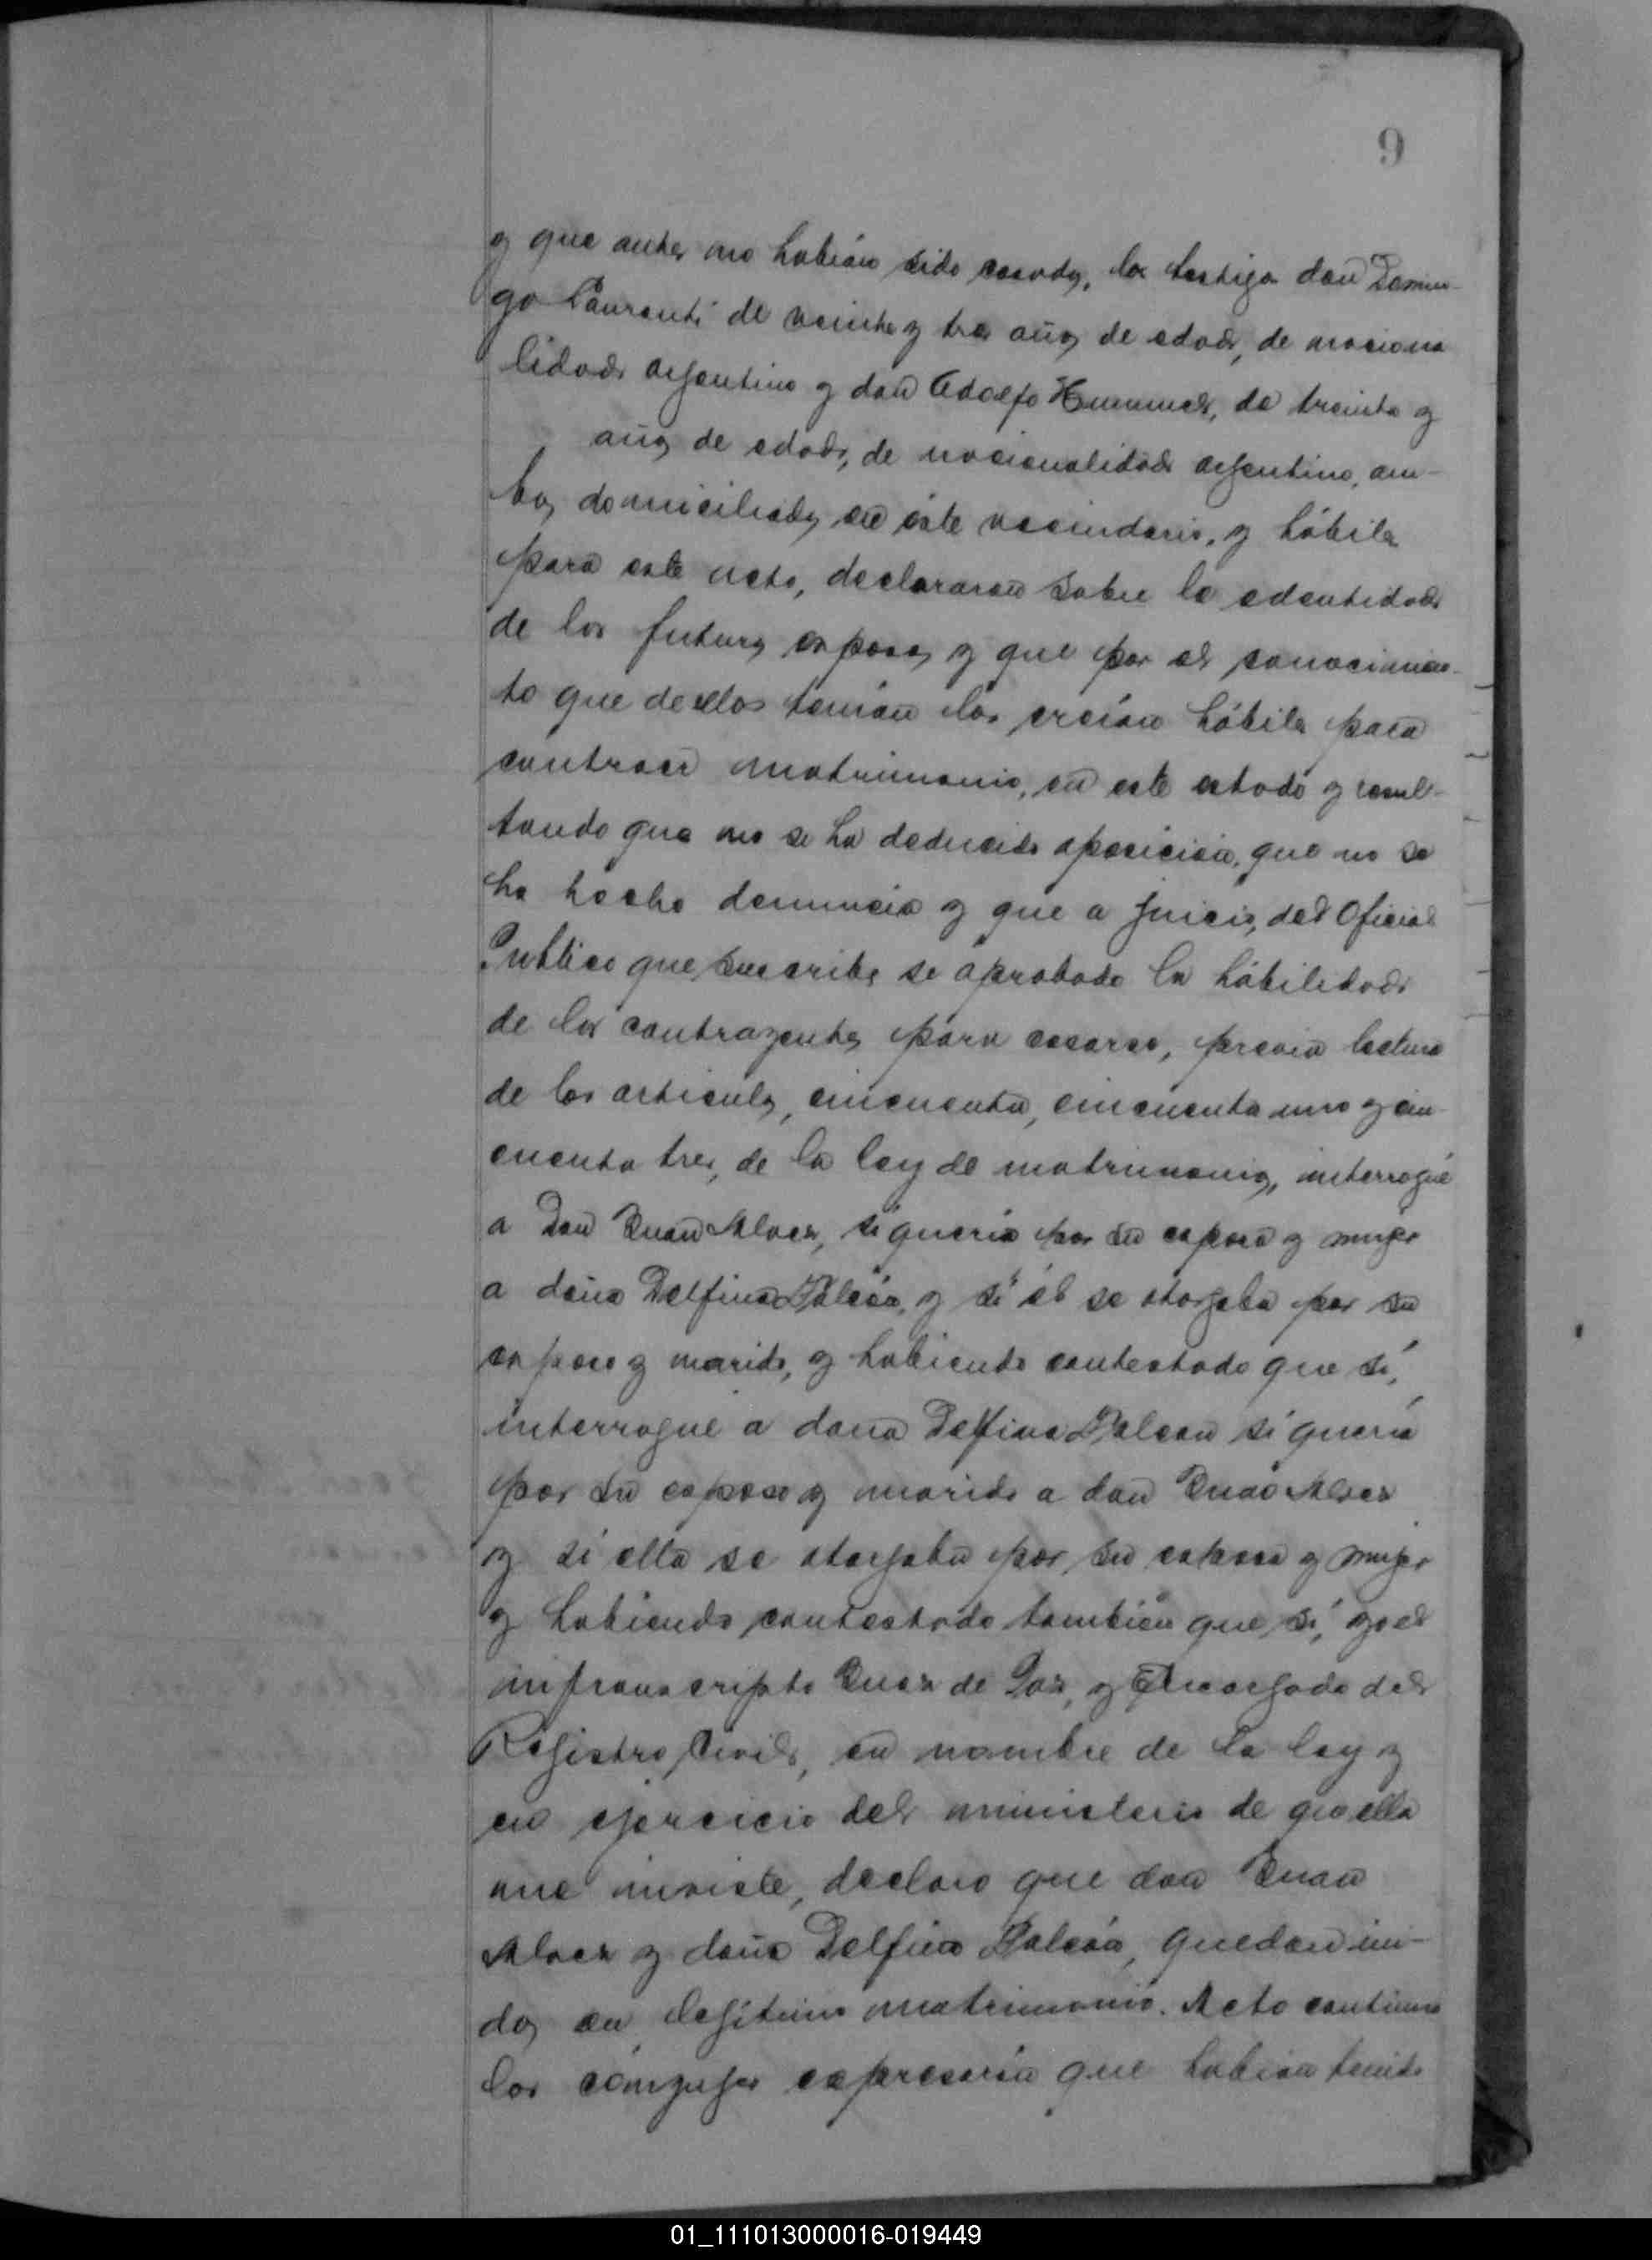 9
y que antes no habían sido casados, los testigos don Domin-
go Laurenti de veinte y tres años de edad, de naciona
lidad argentino y don Adolfo de treinta y
años de edad, de nacionalidad argentino, am-
bos domiciliados en éste vecindario, y hábiles
para este acto, declararon sobre la edentidad
de los futuros esposos y que por el conocimien-
to que de ellos tenían los creían hábiles para
contraer matrimonio, en este estado y resul-
tando que no se ha deducido oposición, que no se
ha hecho denuncia y que a juicio, del Oficial
Publico que suscribe se a probado la hábilidad
de los contrayentes para casarse, previa lectura
de los articulos, cincuenta, cincuenta uno y cin-
cuenta tres, de la ley de matrimonio, interrogué
a Don Juan Alvez, si quería por su esposa y mujer
a doña Delfina Falcón, y si él se otorgaba por su
esposo y marido, y habiendo contestado que sí,
interrogué a doña Delfina Falcon si quería
por su esposo y marido a don Juan Alvez
y si ella se otorgaba por su esposa y mujer
y habiendo contestado también que sí, yo el
infranscripto Juez de Paz, y Encargado del
Registro Civil, en nombre de la ley y
en ejercicio del ministerio de que ella
me inviste, declaro que don Juan
Alvez y doña Delfina Falcón, quedan uni-
dos en legítimo matrimonio. Acto continuo
los cónyujes expresarón que habían tenido
01_111013000016-019449